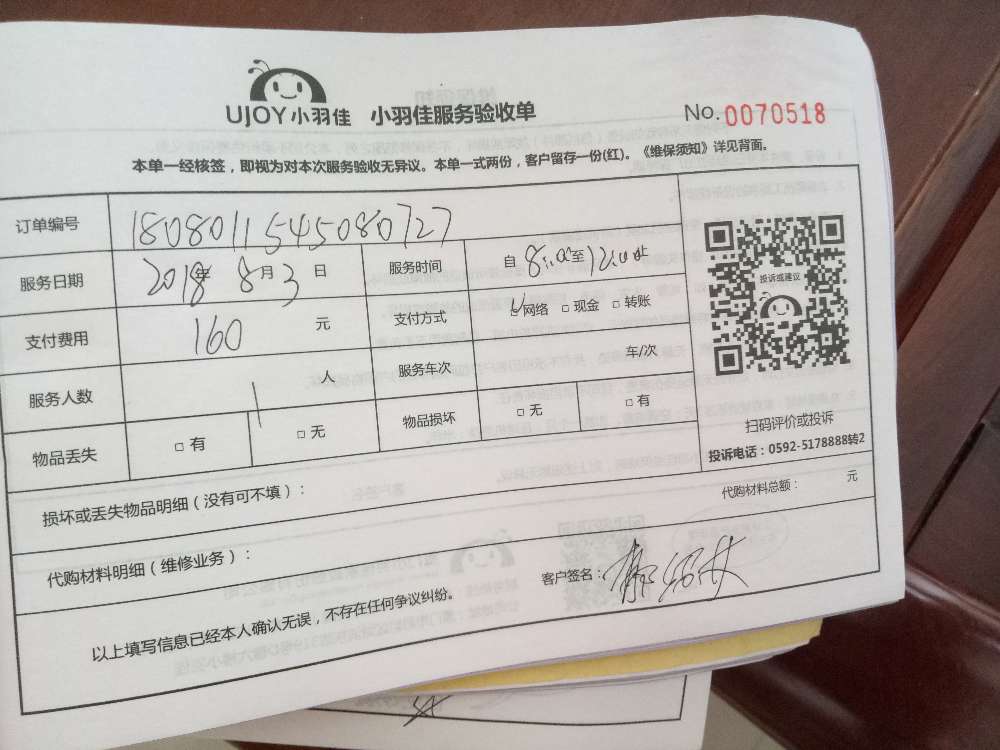 UJOY小羽佳 小羽佳服务验收单 No.0070518
本单一经核签，即视为对本次服务验收无异议。本单一式两份，客户留存一份(红)。《维保须知》详见背面。
订单编号 1808011545080727
服务日期 2018年 8月3日 服务时间 自8:00至12:00止
支付费用 160 元 支付方式 网络 □ 现金 □ 转账
服务人数 1 人 服务车次 车/次
物品丢失 □ 有 □ 无 物品损坏 □ 无 □ 有
投诉或建议
扫码评价或投诉
投诉电话：0592-5178888转2
损坏或丢失物品明细（没有可不填）：
代购材料总额： 元
代购材料明细（维修业务）：
客户签名：
以上填写信息已经本人确认无误，不存在任何争议纠纷。